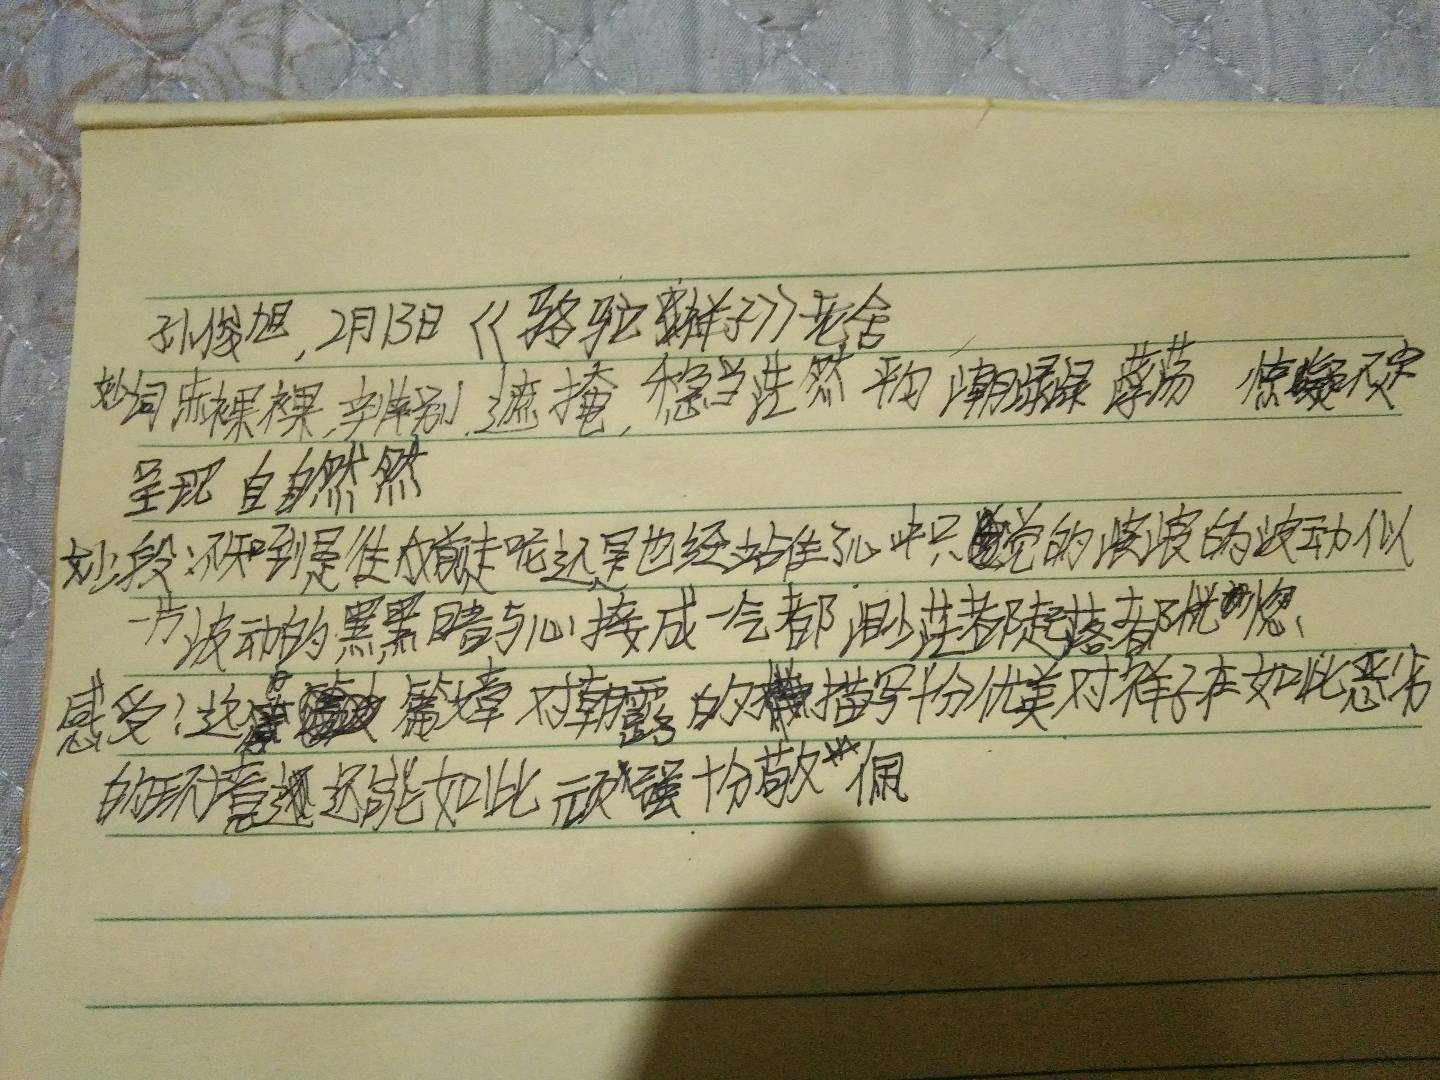 孙俊旭,2月13日《骆驼祥子》老舍
妙词 赤裸裸,辨别,遮掩,稳当 茫然 平匀 潮渌渌 摩荡 惊疑不定
呈现 自自然然
妙段:不知到是往前走呢还是也经站住了心中只觉的浪浪的波动似
一片波动的黑黑暗与心接成一气都渺茫都起落都恍惚、
感受:这 篇章对朝露的描写十分优美对祥子在如此恶劣
的环意还能如此顽强十分敬佩